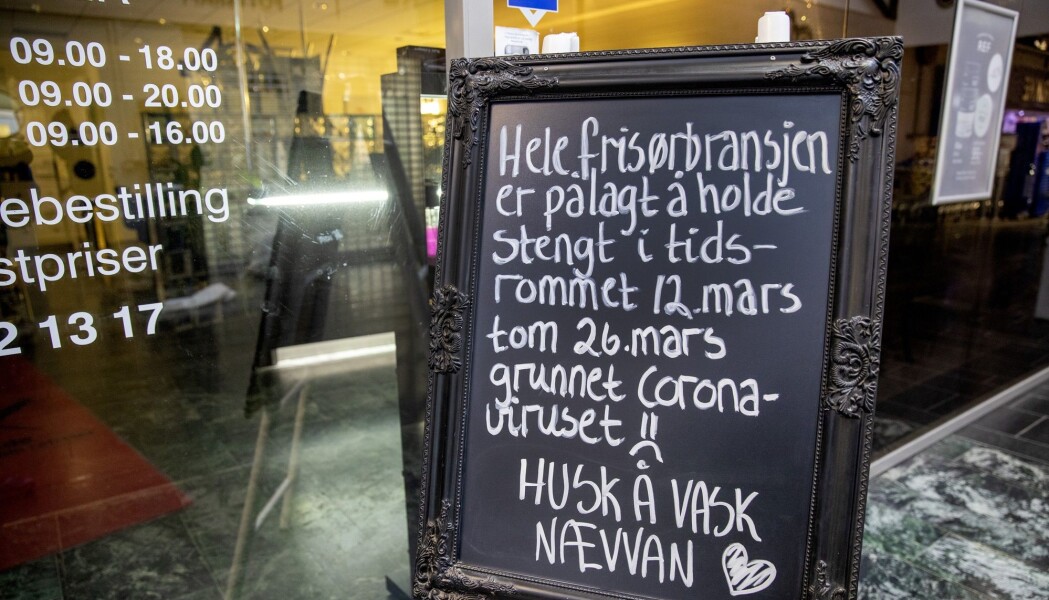 09.00 - 18.00
09.00 - 20.00
09.00 - 16.00
ebestilling
stpriser
2 13 17
Hele frisørbransjen
er pålagt å holde
stengt i tids-
rommet 12.mars
tom 26.mars
grunnet Corona-
viruset !!
HUSK Å VASK
NÆVVAN
REF